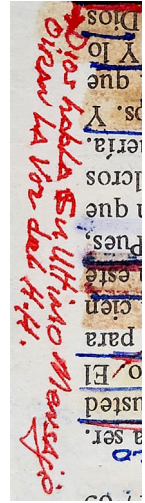 Dios habla Su Ultimo Mensaje
Oiran La Voz del H.H.
a ser.
usted
El
para
cien
este
Pues,
que
ería.
Y
que
Y lo
Dios